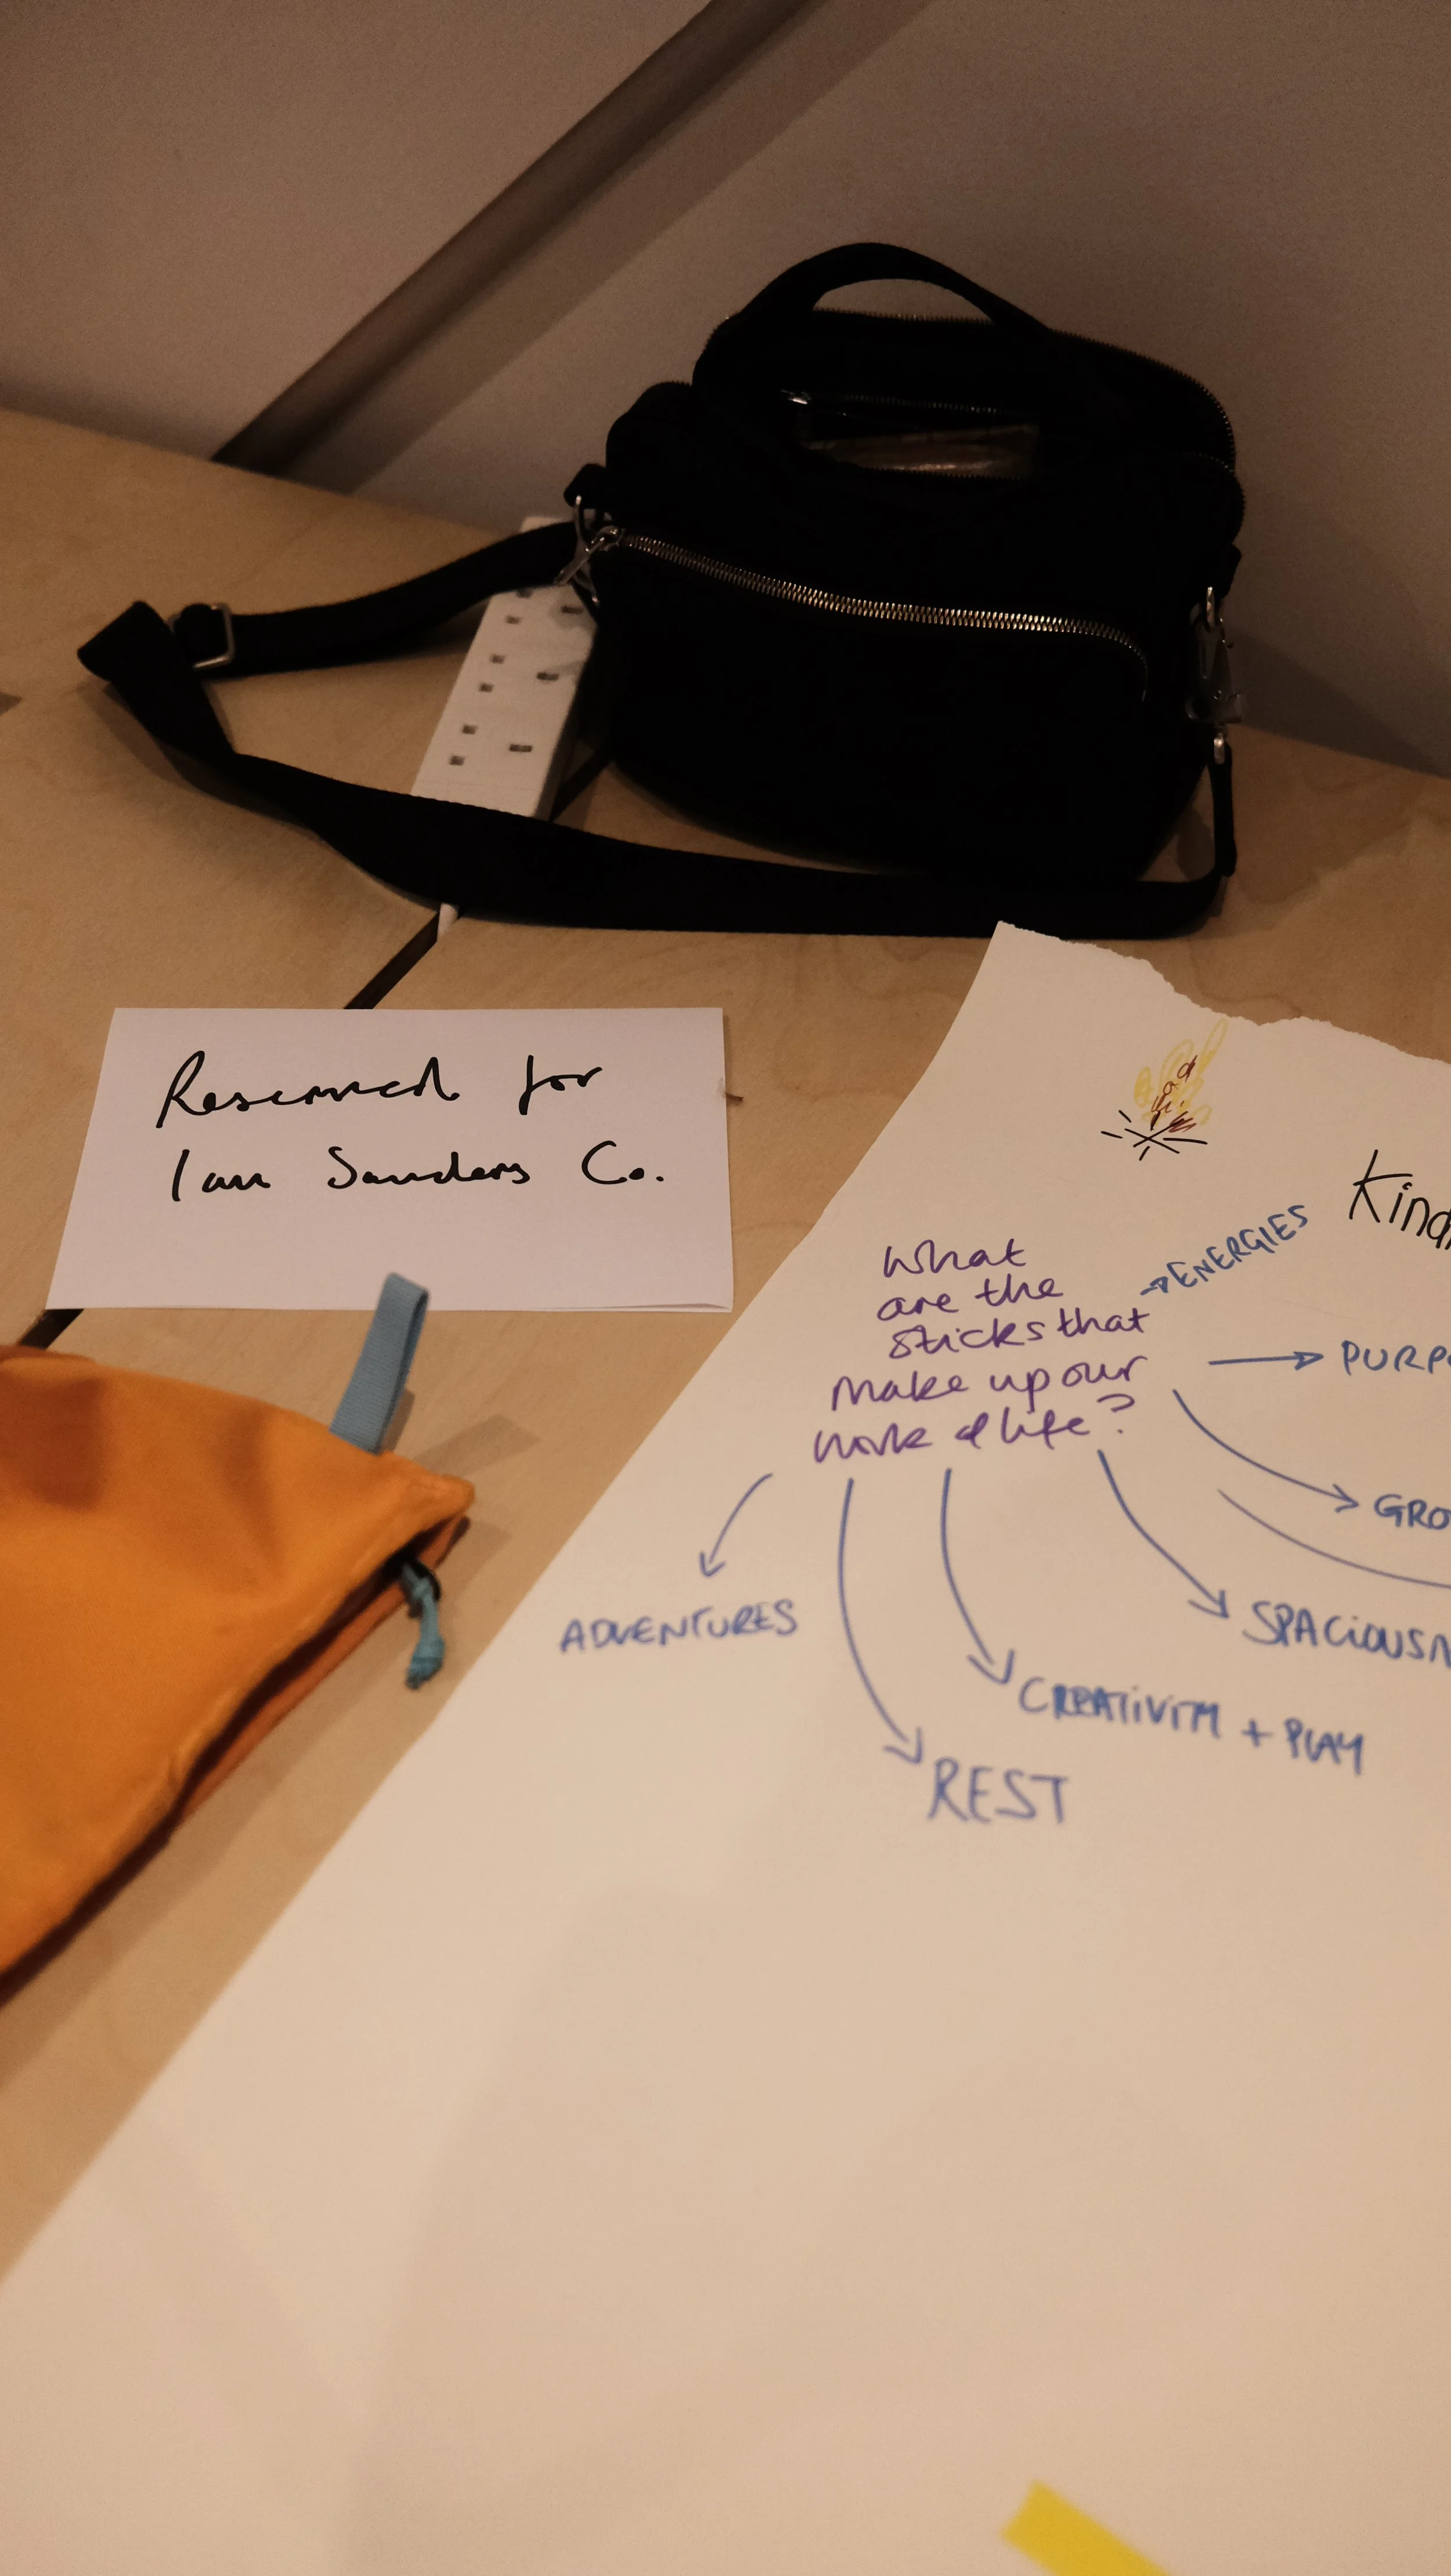 Reserved for
Ian Sanders Co.
Kind
What
are the
sticks that
make up our
work & life?
→ENERGIES
→ PURPO
GRO
SPACIOUSN
CREATIVITY + PLAY
REST
ADVENTURES